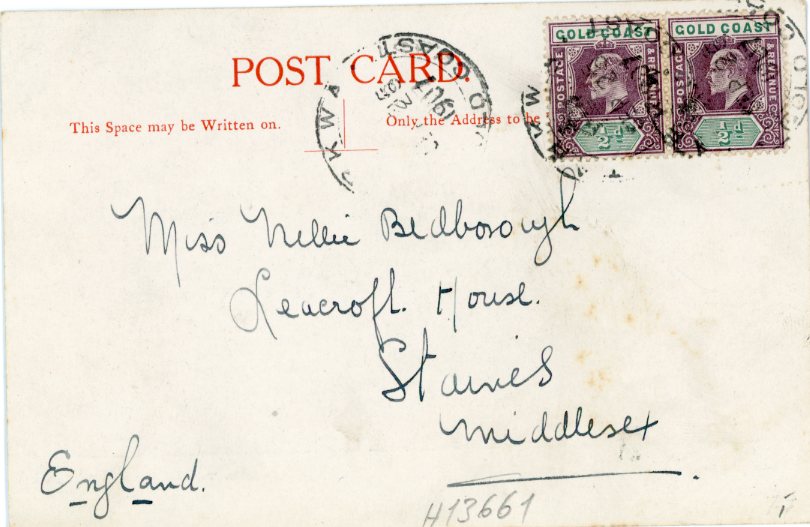 GOLD COAST GOLD COAST
POSTAGE & REVENUE POSTAGE & REVENUE
½d ½d
POST CARD.
This Space may be Written on. Only the Address to be
Miss Nellie Bedborough
Leacroft. House.
Staines
Middlesex
England.
H13661